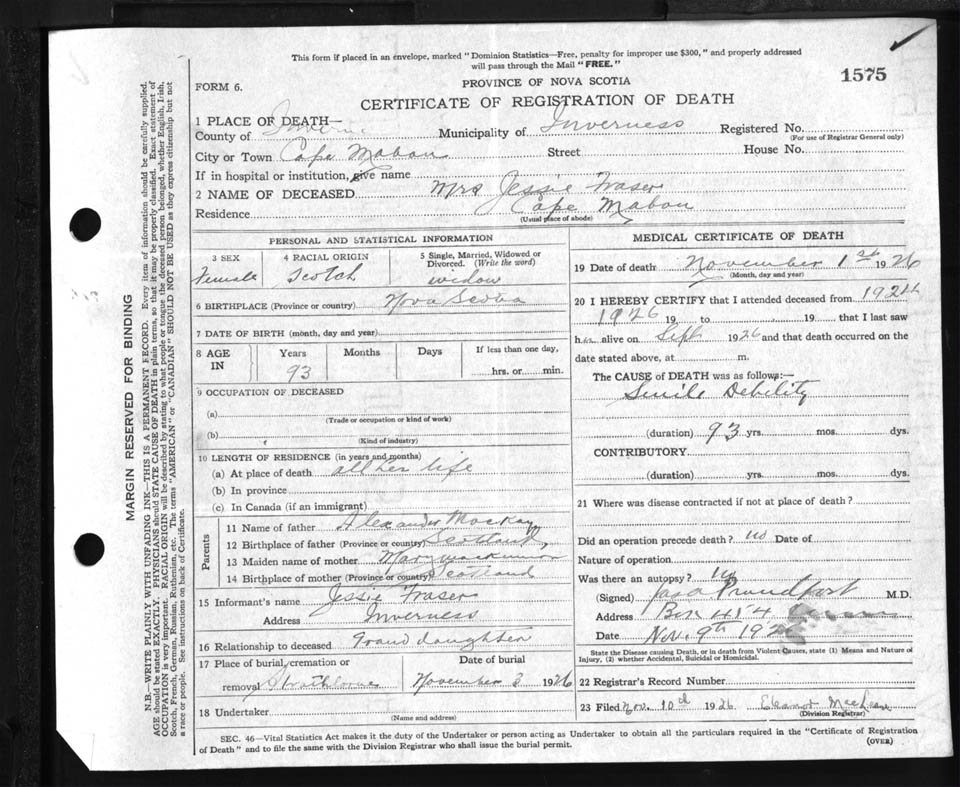 This form if placed in an envelope, marked "Dominion Statistics—Free, penalty for improper use $300," and properly addressed
will pass through the Mail "FREE."
1575
FORM 6.
PROVINCE OF NOVA SCOTIA
CERTIFICATE OF REGISTRATION OF DEATH
1 PLACE OF DEATH—
County of Municipality of Inverness Registered No.
(For use of Registrar General only)
City or Town Cape Mabou Street House No.
If in hospital or institution, give name
2 NAME OF DECEASED Mrs Jessie Fraser
Residence Cape Mabou
(Usual place of abode)
PERSONAL AND STATISTICAL INFORMATION
3 SEX 4 RACIAL ORIGIN 5 Single, Married, Widowed or Divorced. (Write the word)
Female Scotch widow
6 BIRTHPLACE (Province or country) Nova Scotia
7 DATE OF BIRTH (month, day and year)
8 AGE IN Years Months Days If less than one day,
93 hrs. or min.
9 OCCUPATION OF DECEASED
(a)
(Trade or occupation or kind of work)
(b)
(Kind of industry)
10 LENGTH OF RESIDENCE (in years and months)
(a) At place of death all her life
(b) In province
(c) In Canada (if an immigrant)
Parents
11 Name of father Alexander Mackay
12 Birthplace of father (Province or country) Scotland,
13 Maiden name of mother Mary
14 Birthplace of mother (Province or country) Scotland
15 Informant's name Jessie Fraser
Address Inverness
16 Relationship to deceased Grand daughter
17 Place of burial, cremation or Date of burial
removal Strathlorne November 3 1926
18 Undertaker
(Name and address)
MEDICAL CERTIFICATE OF DEATH
19 Date of death November 1st 1926
(Month, day and year)
20 I HEREBY CERTIFY that I attended deceased from
1926 19 to , 19 that I last saw
her alive on Sept 1926 and that death occurred on the
date stated above, at m.
The CAUSE OF DEATH was as follows:—
Senile Debility
(duration) 93 yrs. mos. dys.
CONTRIBUTORY
(duration) yrs. mos. dys.
21 Where was disease contracted if not at place of death?
Did an operation precede death? no Date of
Nature of operation
Was there an autopsy? no
(Signed) Jas A Proudfoot M.D.
Address Box 454
Date Nov. 9th 192
State the Disease causing Death, or in death from Violent Causes, state (1) Means and Nature of
Injury, (2) whether Accidental, Suicidal or Homicidal.
22 Registrar's Record Number
23 Filed Nov. 10th 1926 Eleanor
(Division Registrar)
SEC. 46—Vital Statistics Act makes it the duty of the Undertaker or person acting as Undertaker to obtain all the particulars required in the "Certificate of Registration
of Death" and to file the same with the Division Registrar who shall issue the burial permit.
(OVER)
MARGIN RESERVED FOR BINDING
N.B.—WRITE PLAINLY WITH UNFADING INK—THIS IS A PERMANENT RECORD. Every item of information should be carefully supplied.
AGE should be stated EXACTLY. PHYSICIANS should STATE CAUSE OF DEATH in plain terms, so that it may be properly classified. Exact statement of
OCCUPATION is very important. RACIAL ORIGIN will be described by stating to what people or tongue the deceased person belonged, whether English, Irish,
Scotch, French, German, Russian, Ruthenian, etc. The terms "AMERICAN" or "CANADIAN" SHOULD NOT BE USED as they express citizenship but not
a race or people. See instructions on back of Certificate.